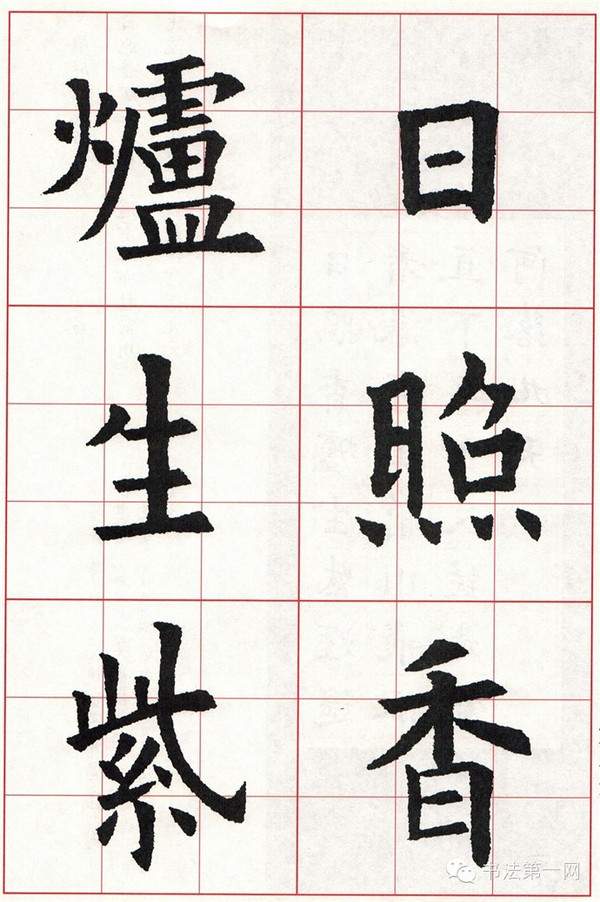 日照香
爐生紫
书法第一网